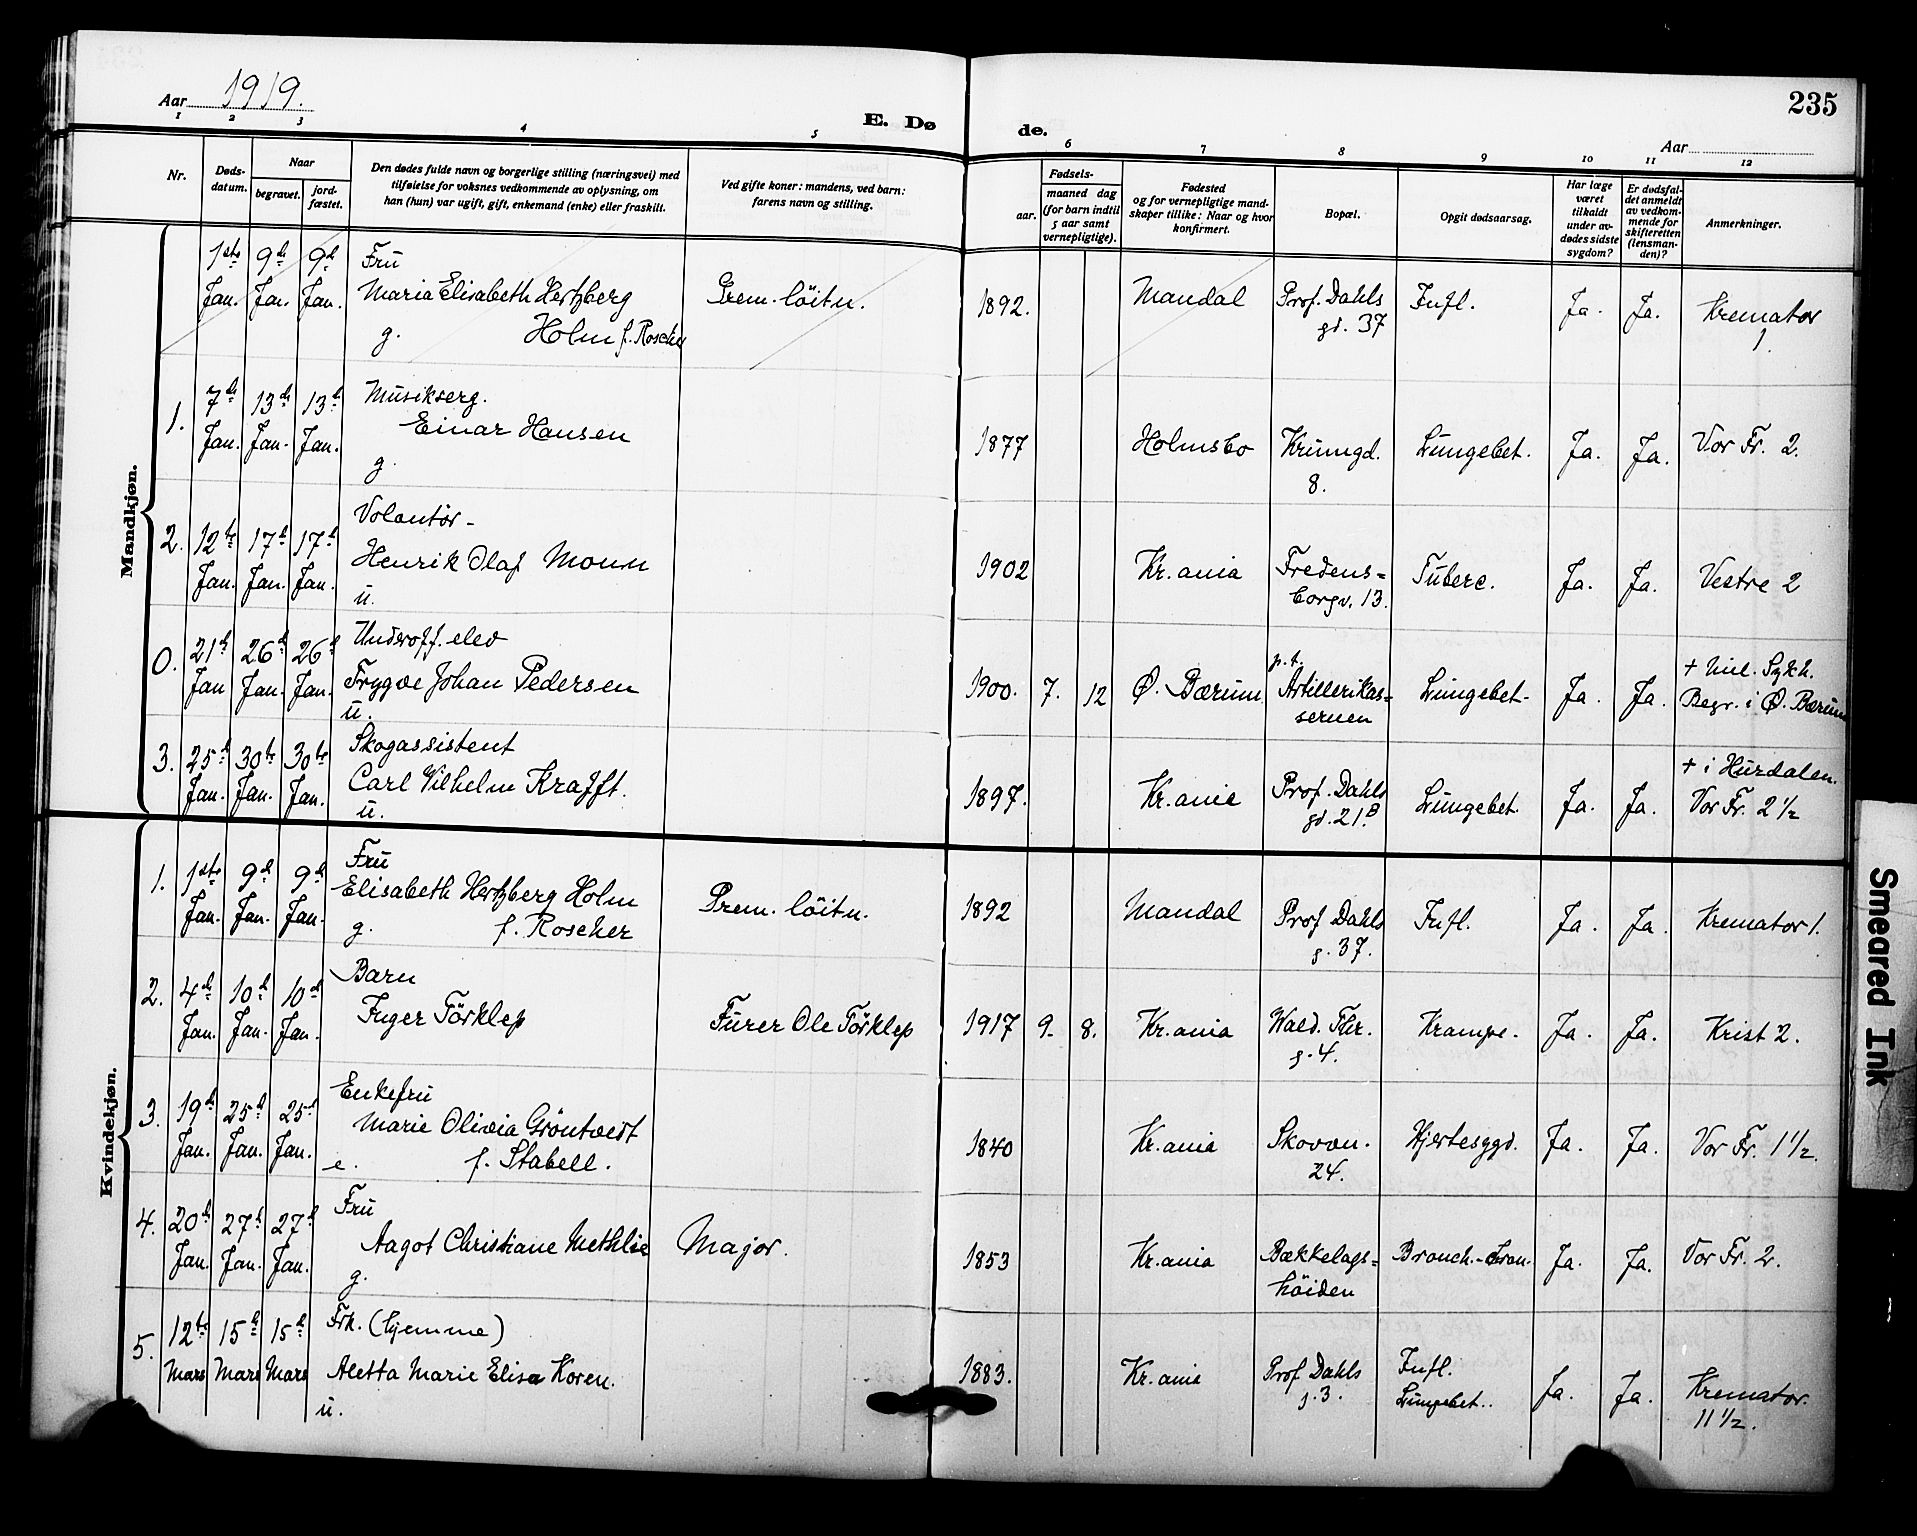 Aar 1919.
E. Døde.
235
Aar
1 2 3 4 5 6 7 8 9 10 11 12
Nr.
Døds-
datum.
Naar
begravet.
jord-
fæstet.
Den dødes fulde navn og borgerlige stilling (næringsvei) med
tilføielse for voksnes vedkommende av oplysning, om
han (hun) var ugift, gift, enkemand (enke) eller fraskilt.
Ved gifte koner: mandens, ved barn:
farens navn og stilling.
Fødsels-
aar.
maaned dag
(for barn indtil
5 aar samt
vernepligtige).
Fødested
og for vernepligtige mand-
skaper tillike: Naar og hvor
konfirmert.
Bopæl.
Opgit dødsaarsag.
Har læge
været
tilkaldt
under av-
dødes sidste
sygdom?
Er dødsfal-
det anmeldt
av vedkom-
mende for
skifteretten
(lensman-
den)?
Anmerkninger.
Mandkjøn.
1ste Jan. 9de Jan. 9d Jan.
Fru
Maria Elisabeth Hertzberg
g. Holm f. Roscher
Prem. löitn.
1892. Mandal
Prof. Dahls
gd. 37
Infl. Ja. Ja.
Kremator
1.
1. 7de Jan. 13de Jan. 13d Jan.
Musikserg.
Einar Hansen
g.
1877 Holmsbo
Krumgd.
8.
Lungebet. Ja. Ja. Vor Fr. 2.
2. 12te Jan. 17d Jan. 17d Jan.
Volontør-
Henrik Olaf Monn
u.
1902 Kr.ania
Fredens=
borgv. 13.
Tuberc. Ja. Ja. Vestre 2
0. 21d Jan 26d Jan. 26d Jan.
Underoff. elev
Trygve Johan Pedersen
u.
1900. 7. 12 Ø. Bærum
p.t.
Artillerikas=
sernen
Lungebet- Ja. Ja.
+ Mil. Sykh.
Begr. i Ø. Bærum
3. 25d Jan. 30te Jan. 30te Jan.
Skogassistent
Carl Vilhelm Krafft.
u.
1897. Kr.ania
Prof. Dahls
gd. 21.B
Lungebet. Ja. Ja.
+ i Hurdalen.
Vor Fr. 2 1/2
Kvindekjøn.
1. 1ste Jan. 9d Jan. 9d Jan.
Fru
Elisabeth Hertzberg Holm
g. f. Roscher
Prem. löitn.
1892 Mandal
Prof Dahls
g. 37.
Infl. Ja. Ja. Kremator 1.
2. 4de Jan. 10d Jan. 10d Jan.
Barn
Inger Törklep
Furer Ole Törklep
1917 9. 8. Kr.ania
Wald. Thr.
g. 4.
Krampe. Ja. Ja. Krist 2.
3. 19de Jan. 25d Jan. 25d Jan.
Enkefru
Marie Olivia Gröntvedt
e. f. Stabell.
1840 Kr.ania
Skovvn.
24.
Hjertesygd. Ja. Ja. Vor Fr. 1 1/2.
4. 20de Jan. 27d Jan. 27d Jan.
Fru
Aagot Christiane Methlie
g.
Major.
1853 Kr.ania
Bækkelags=
höiden
Bronch.- Ja. Ja. Vor Fr. 2.
5. 12te Mars 15de Mars 15d Mars
Frk. (hjemme)
Aletta Marie Elisa Koren.
u.
1883. Kr.ania
Prof Dahls
g. 3.
Infl.
Lungebet..
Ja. Ja.
Kremator.
11 1/2.
Smeared Ink